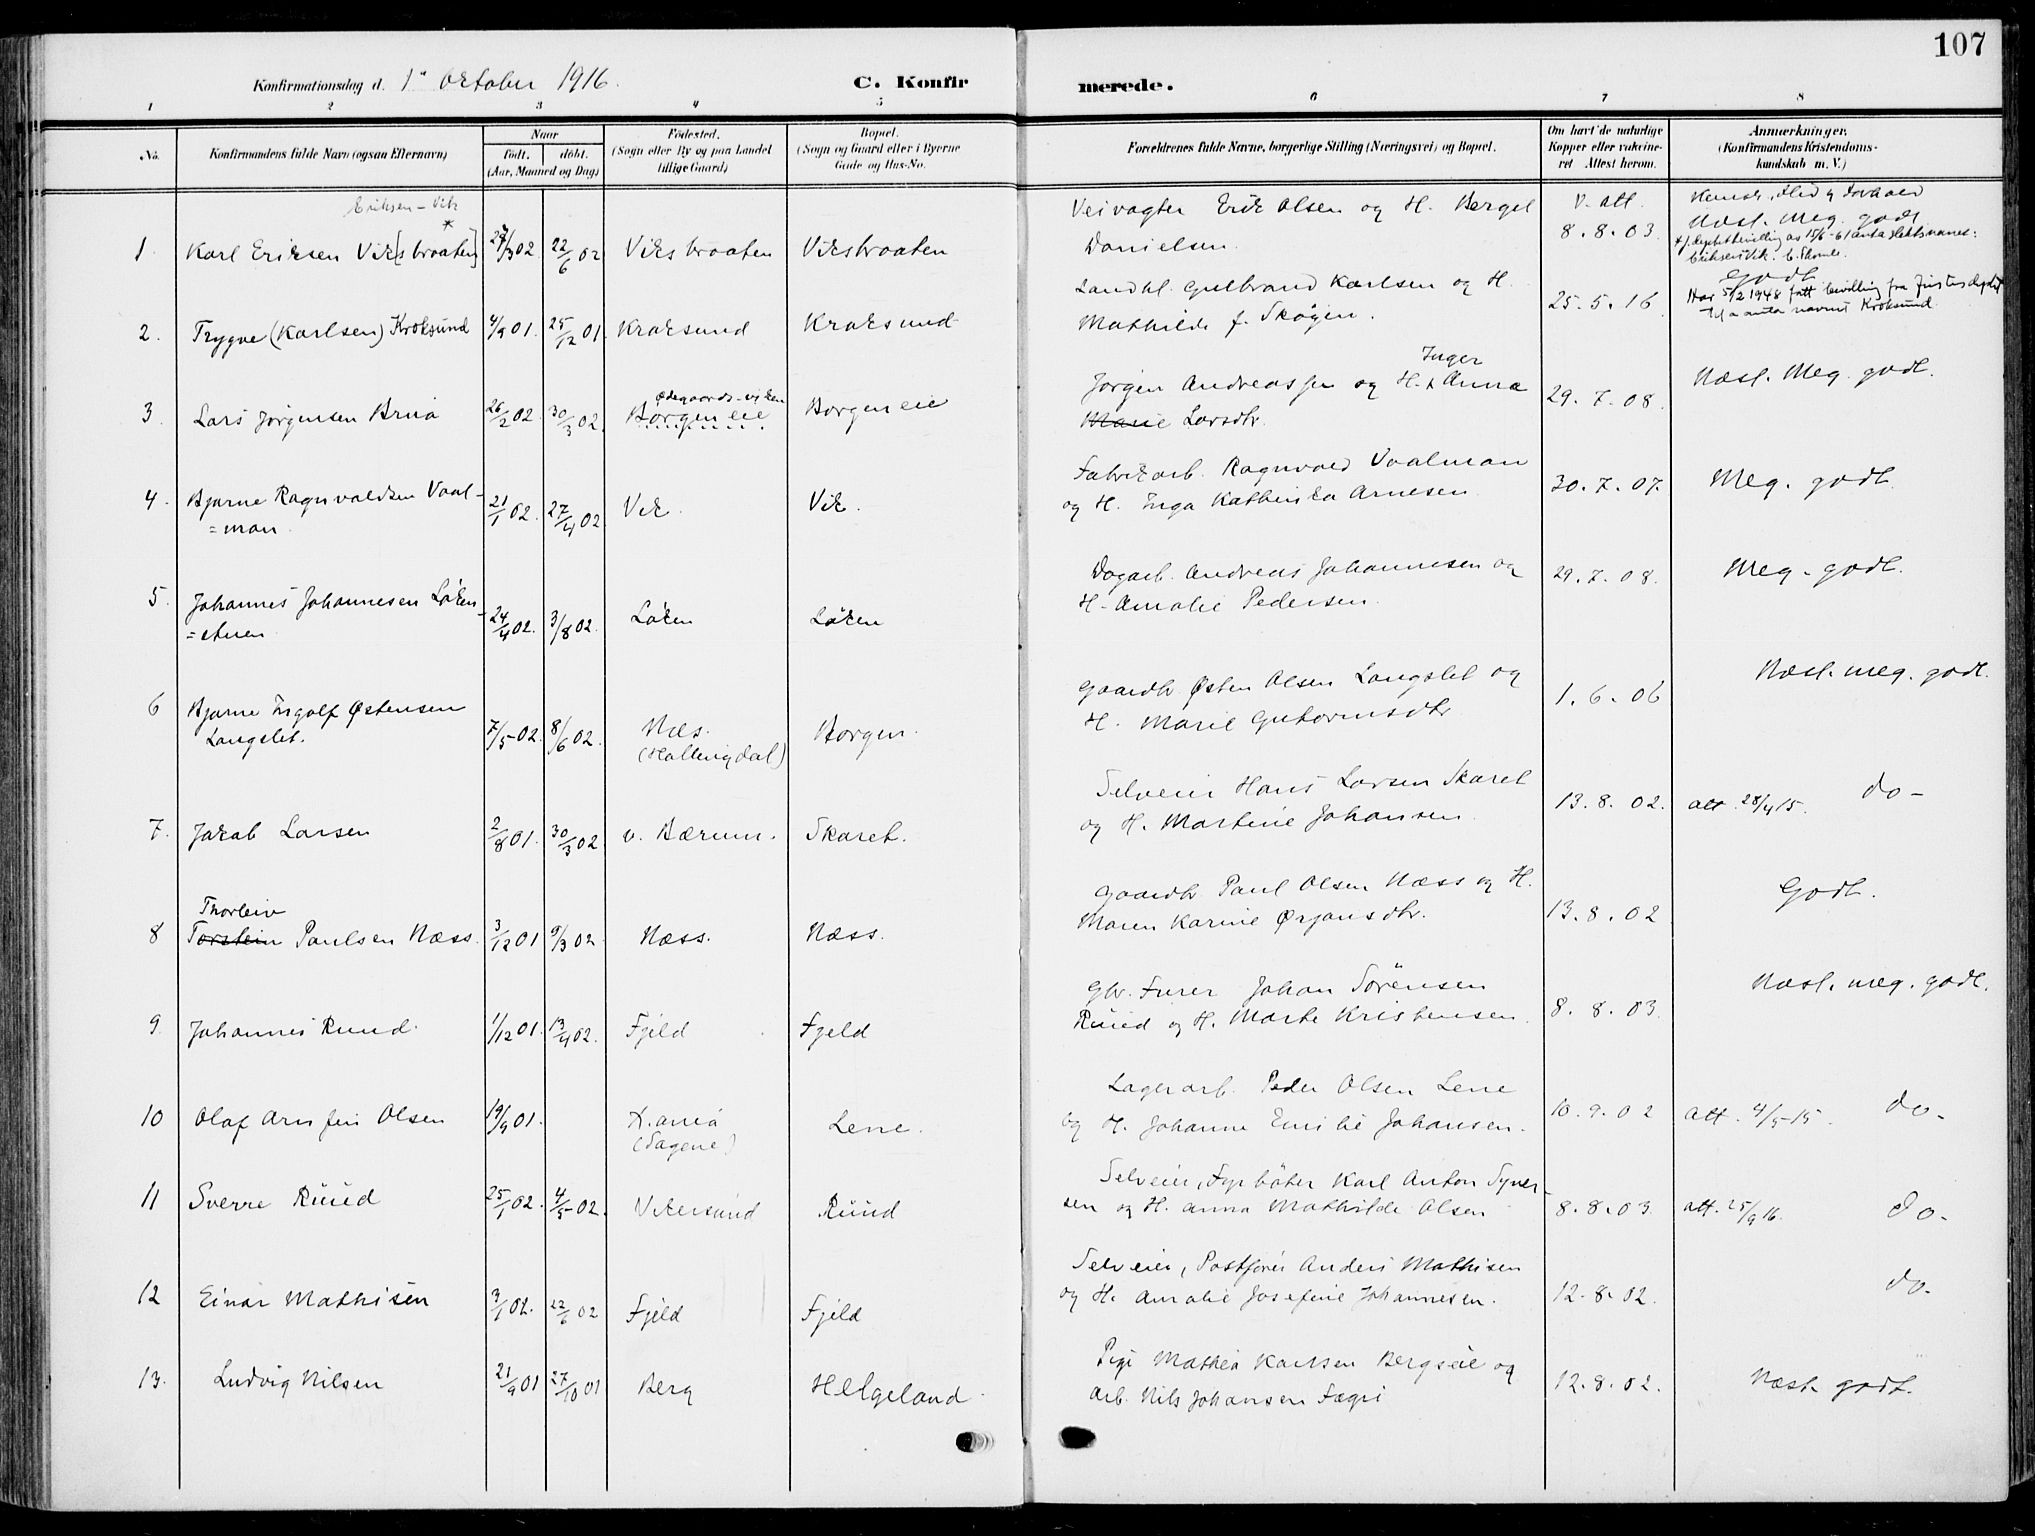 107
Konfirmationsdag d. 1ste October 1916. C. Konfirmerede.
1 2 3 4 5 6 7 8
No. Konfirmandens fulde Navn (ogsaa Efternavn) Naar født. døbt. (Aar, Maaned og Dag) Fødested. (Sogn eller By og paa Landet tillige Gaard) Bopæl. (Sogn og Gaard eller i Byerne Gade og Hus-No. Forældrenes fulde Navne, borgerlige Stilling (Næringsvei) og Bopæl. Om havt de naturlige Kopper eller vakcineret Attest herom. Anmærkninger. (Konfirmandens Kristendomskundskab m. V.)
Eriksen - Vik
*
1 Karl Eriksen Vik[sbraaten] 29/3 02 22/6 02 Viksbraaten Viksbraaten Veivagter Erik Olsen og H. Berget
Danielsen. v. att. 8. 8. 03. Næst. Meg. godt
2. Trygve (Karlsen) Kroksund 4/9 01. 25/12 01 Kroksund Kroksund Landhl. Gulbrand Karlsen og H.
Mathilde f. Skogen. 25. 5. 16 Godt
Har 5/2 1948 fått bevilling fra Justisdeptet
til å anta navnet Kroksund
3. Lars Jørgensen Bruå 26/2 02. 30/3 02. Ødegaards-viken
Borgen eie Borgen eie Jørgen Andreassen og H. Inger Anna
Marie Larsdtr. 29. 7. 08. Næst. Meg. godt.
4. Bjarne Ragnvaldsen Vaal-
=man. 21/1 02. 27/4 02 Vik. Vik. Fabrikarb. Ragnvald Vaalman
og H. Inga Kathinka Arnesen 30. 7. 07. Meg. godt.
5. Johannes Johannesen Løken-
=stuen 24/4 02. 3/8 02. Løken Løken Dagarb. Andreas Johannesen og
H. Amalie Pedersen. 29. 7. 08. Meg. godt.
6 Bjarne Ingolf Østensen
Langslet. 7/5 02. 8/6 02. Næs.
(Hallingdal) Borgen. Gaardbr. Østen Olsen Langslet og
H. Marie Guttormsdtr 1. 6. 06 Næst. meg. godt.
7. Jakob Larsen 2/8 01. 30/3 02 v. Bærum. Skaret. Selveier Hans Larsen Skaret
og H. Martine Johansen. 13. 8. 02. att. 28/4 15. do-
Thorleiv
8 Torstein Paulsen Næss. 3/12 01 9/3 02. Næss. Næss. Gaardbr Paul Olsen Næss og H.
Maren Karine Ørjansdtr. 13. 8. 02 Godt.
9. Johannes Ruud. 1/12 01. 13/4 02. Fjeld Fjeld Gbr. Furer Johan Sørensen
Ruud og H. Marte Kristensen. 8. 8. 03. Næst. meg. godt.
10 Olaf Arnfin Olsen 19/9 01. X.ania
(Sagene) Lene. Lagerarb. Peder Olsen Lene
og H. Johanne Emilie Johansen. 10. 9. 02 att. 4/5 15. do-
11 Sverre Ruud 25/1 02. 4/5 02. Vikersund Ruud Selveier, Fyrbøter Karl Anton Syver-
sen og H. Anna Mathilde Olsen 8. 8. 03. att. 25/9 16. do-
12 Einar Mathisen 3/1 02. 22/6 02 Fjeld Fjeld Selveier, Postfører Anders Mathisen
og H. Amalie Josefine Johannesen. 12. 8. 02. do-
13. Ludvig Nilsen 21/9 01 27/10 01 Berg Helgeland. Pige Mathea Karlsen Bergseie og
Arb. Nils Johansen Fægri 12. 8. 02. Næst godt.